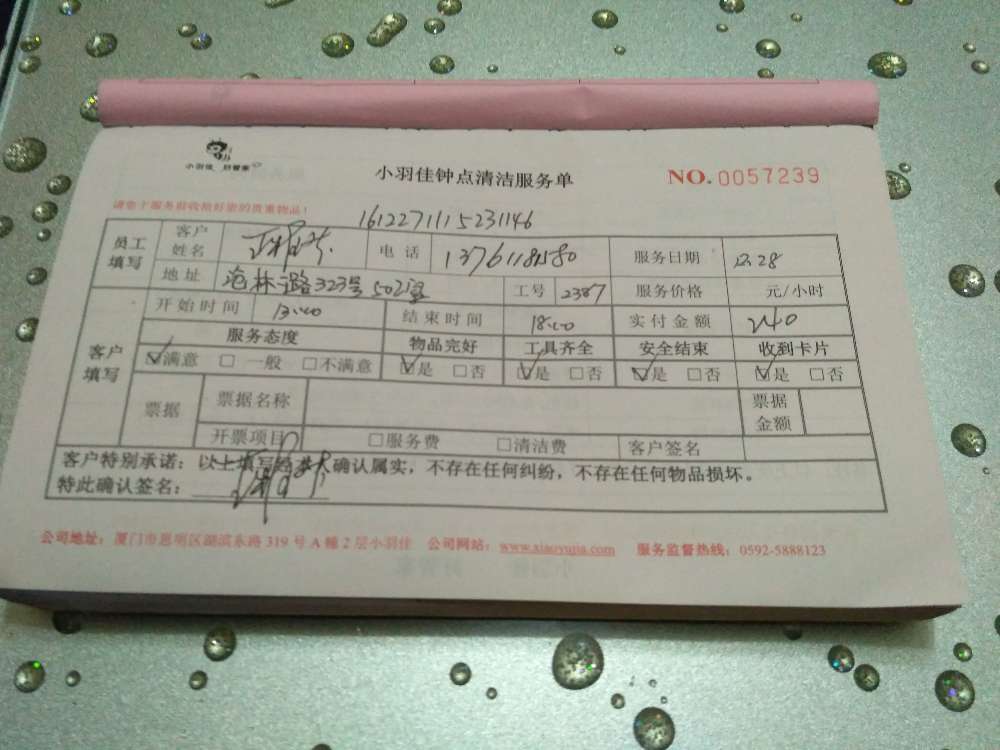 小羽佳 好管家
小羽佳钟点清洁服务单
NO.0057239
请您于服务前收拾好您的贵重物品！
1612271115231146
员工填写 客户姓名 电话 服务日期 12.28
地址 323号502室 工号 2387 服务价格 元/小时
客户填写 开始时间 13:00 结束时间 18:00 实付金额 240
服务态度 物品完好 工具齐全 安全结束 收到卡片
☑满意 □一般 □不满意 ☑是 □否 ☑是 □否 ☑是 □否 ☑是 □否
票据 票据名称 票据金额
开票项目 □服务费 □清洁费 客户签名
客户特别承诺：以上填写经本人确认属实，不存在任何纠纷，不存在任何物品损坏。
特此确认签名：
公司地址：厦门市思明区湖滨东路 319 号 A 幢 2 层小羽佳 公司网站：www.xiaoyujia.com 服务监督热线：0592-5888123